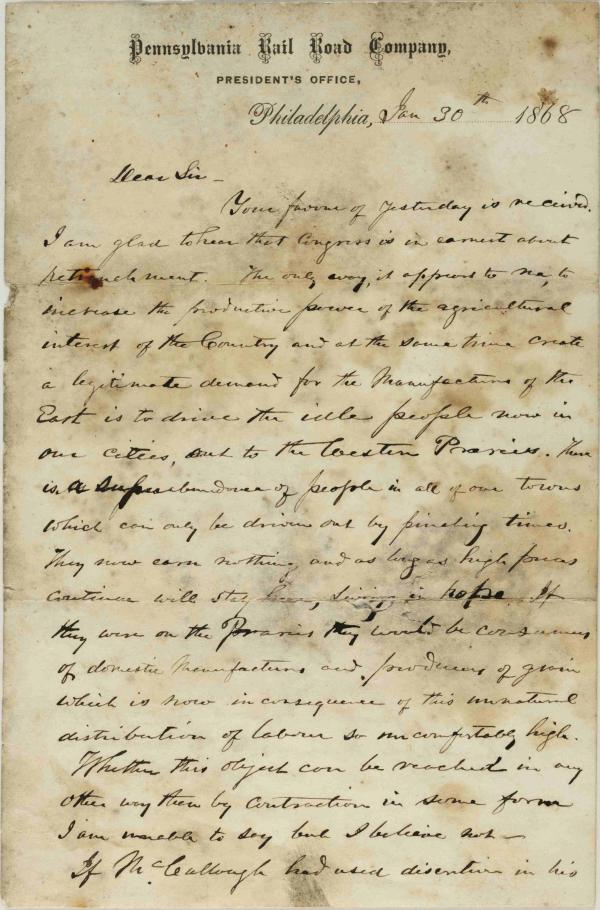 Pennsylvania Rail Road Company,
PRESIDENT'S OFFICE,
Philadelphia, Jan 30th 1868
Dear Sir –
Your favour of yesterday is received.
I am glad to hear that Congress is in earnest about
retrenchment. The only way, it appears to me, to
increase the productive power of the agricultural
interest of the Country and at the same time create
a legitimate demand for the Manufactures of the
East is to drive the idle people now in
our cities, out to the Western Praries. There
is a superabundance of people in all of our towns
which can only be driven out by pinching times.
They now earn nothing and as long as high prices
continue will stay here, living in hope. If
they were on the Praries they would be consumers
of domestic Manufactures and producers of grain
which is now in consequence of this unnatural
distribution of labour so uncomfortably high.
Whether this object can be reached in any
other way than by Contraction in some form
I am unable to say but I believe not –
If McCullough had used discretion in his